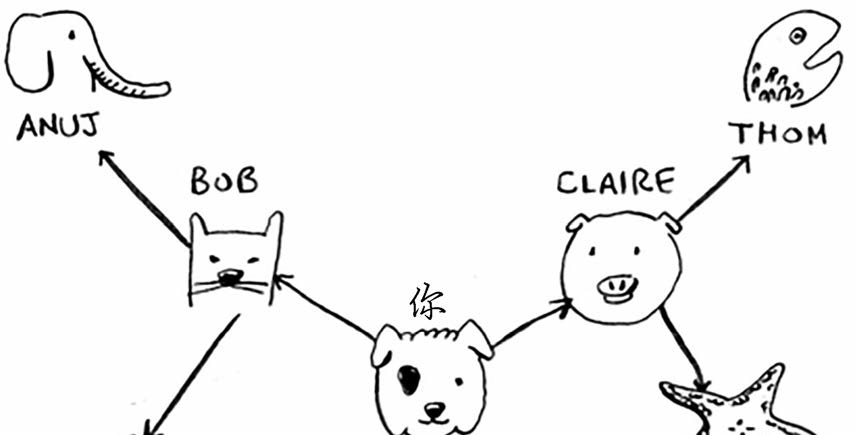 ANUJ
THOM
BOB
CLAIRE
你